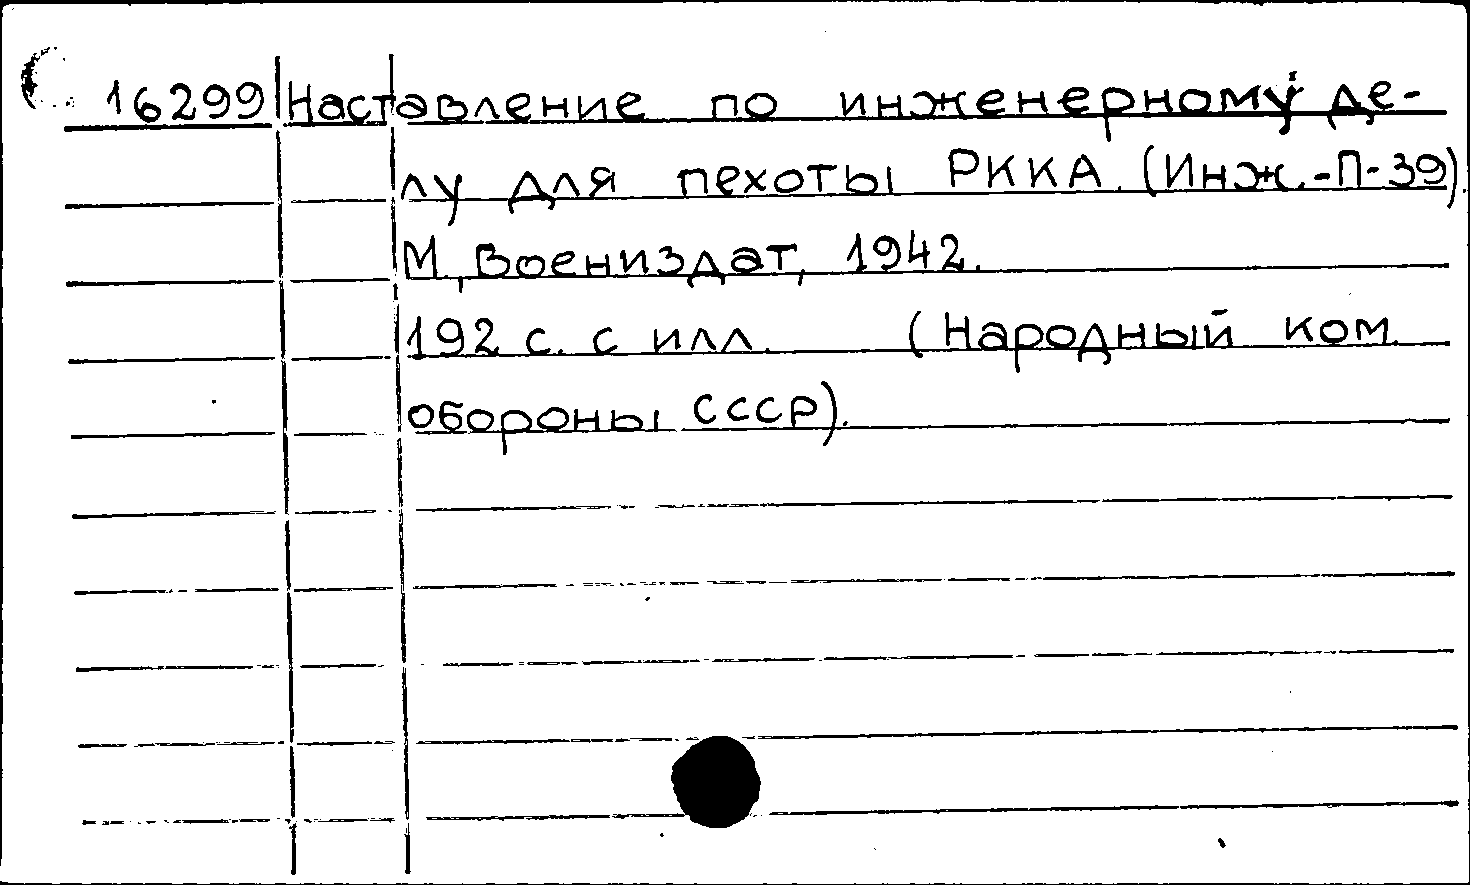 16299 Наставление по инженерному де-
лу для пехоты РККА. (Инж.-П-39).
М., Воениздат, 1942.
192 с. с илл. (Народный ком.
обороны СССР).